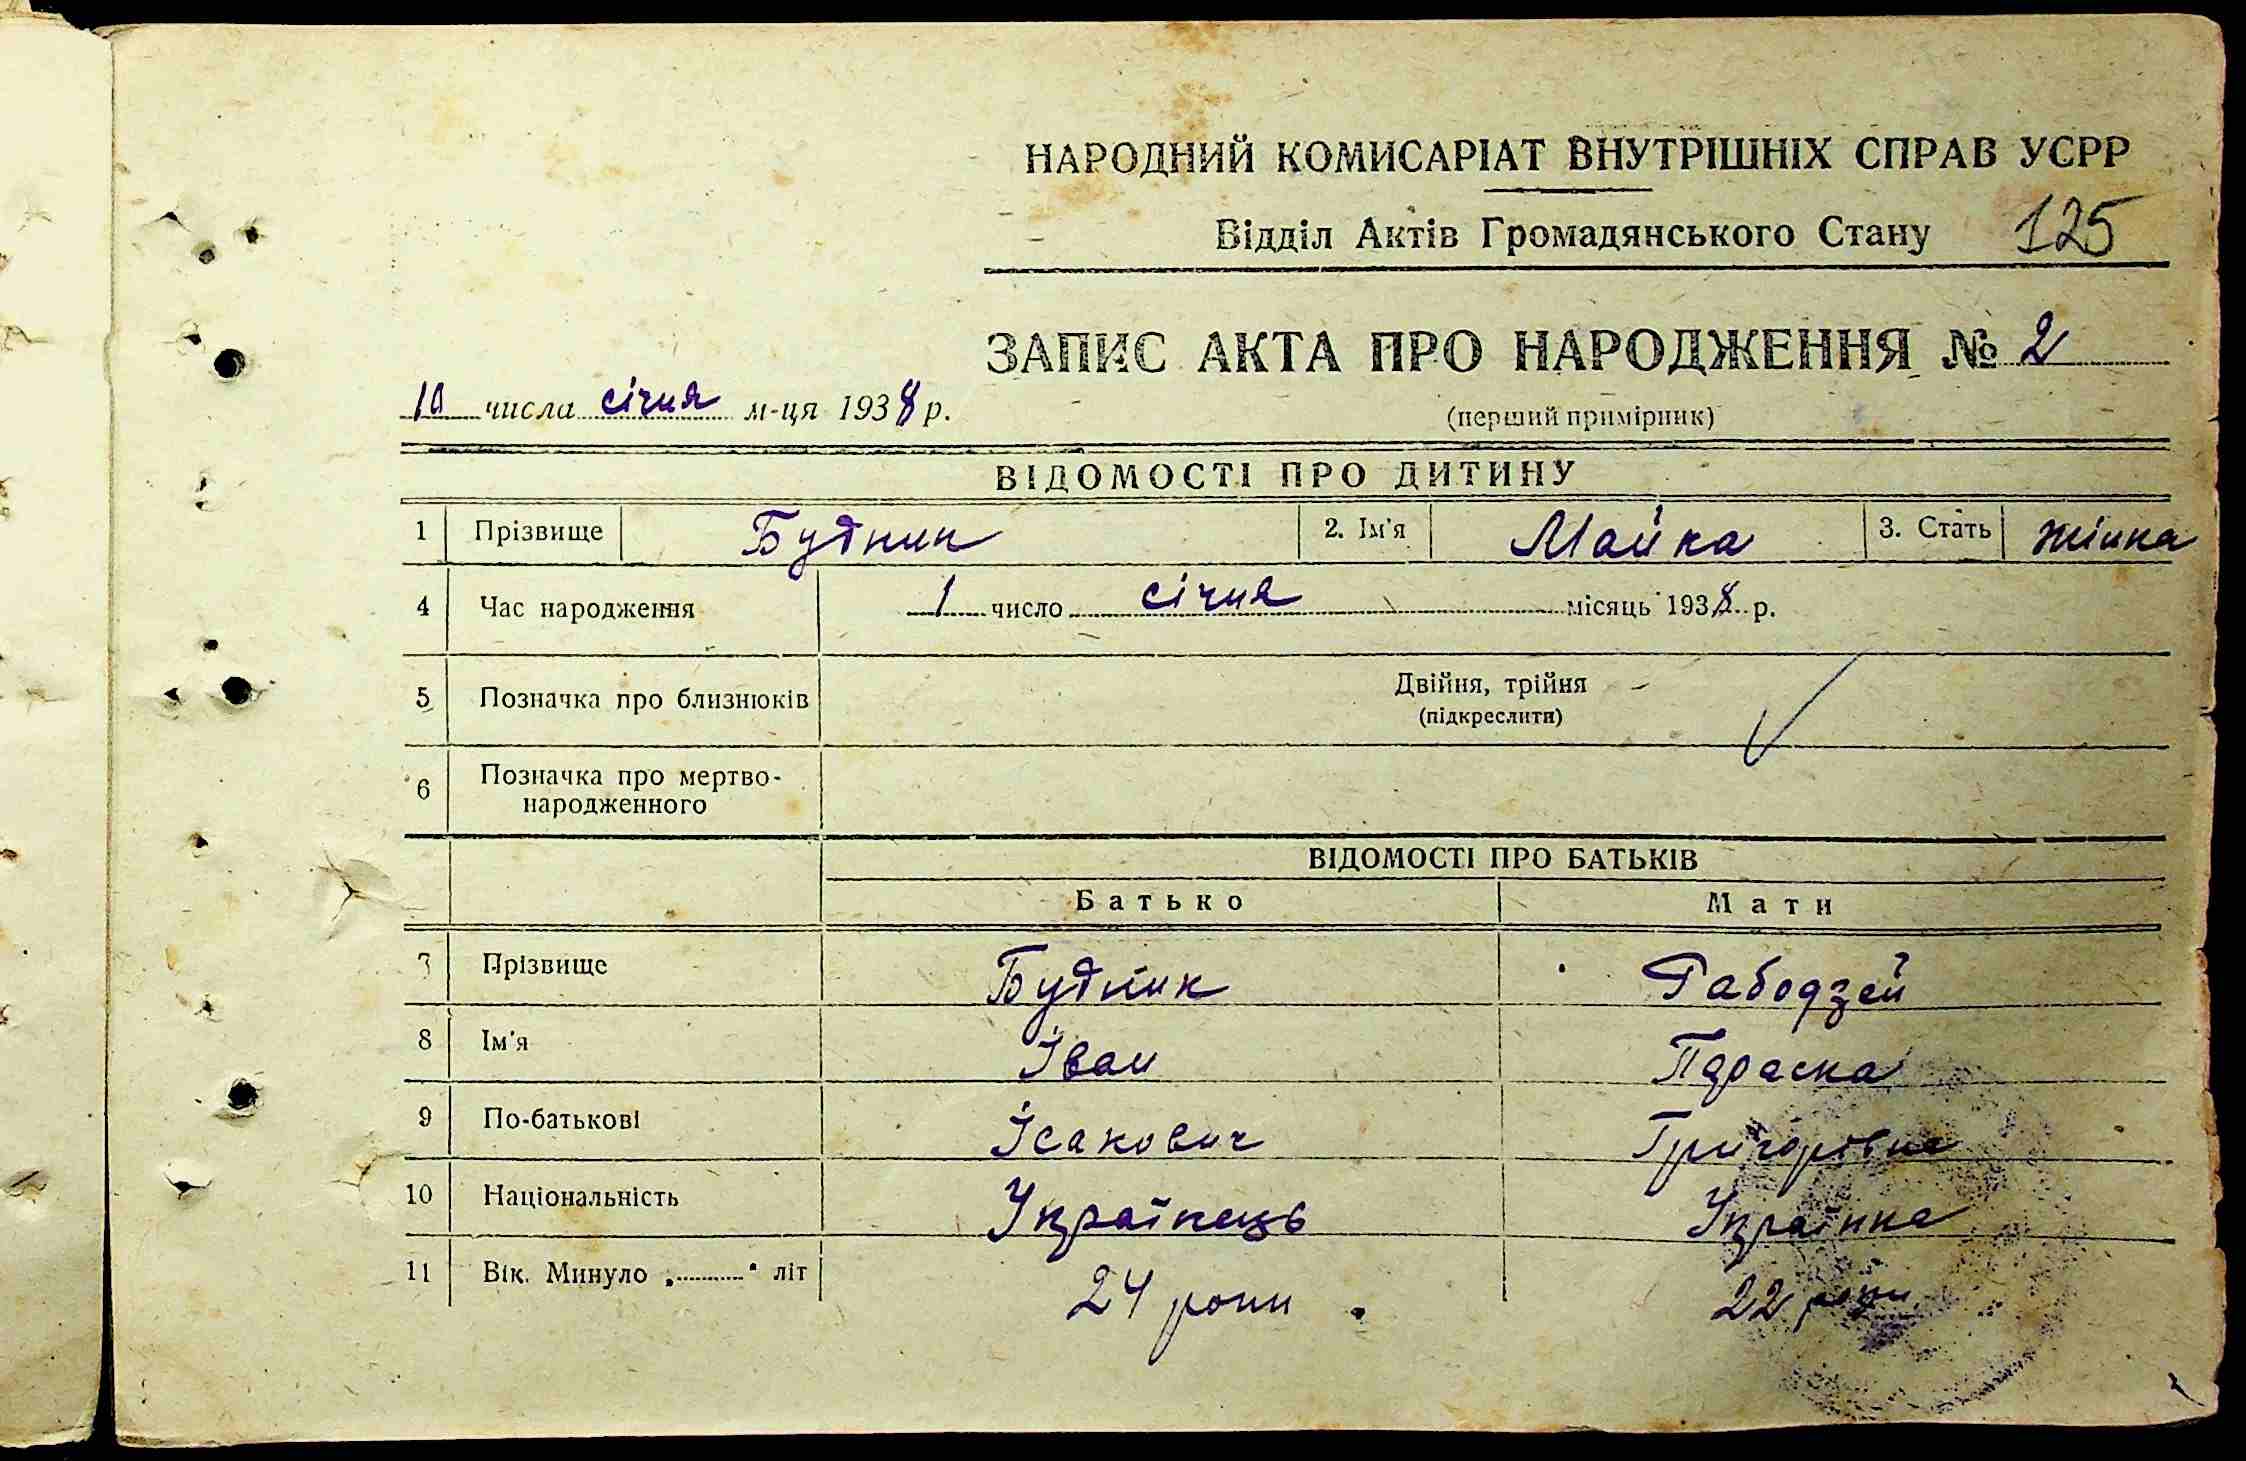 НАРОДНИЙ КОМИСАРІАТ ВНУТРІШНІХ СПРАВ УСРР
Відділ Актів Громадянського Стану 125
ЗАПИС АКТА ПРО НАРОДЖЕННЯ № 2
10 числа січня м-ця 1938 р.
(перший примірник)
ВІДОМОСТІ ПРО ДИТИНУ
1 Прізвище Будник 2. Ім'я Майка 3. Стать жінка
4 Час народження 1 число січня місяць 1938 р.
5 Позначка про близнюків Двійня, трійня
(підкреслити)
6 Позначка про мертво-
народженного
ВІДОМОСТІ ПРО БАТЬКІВ
Батько Мати
7 Прізвище Будник Габодзей
8 Ім'я Іван Параска
9 По-батькові Ісакович Григорівна
10 Національність Українець Українка
11 Вік. Минуло „ “ літ 24 роки 22 роки